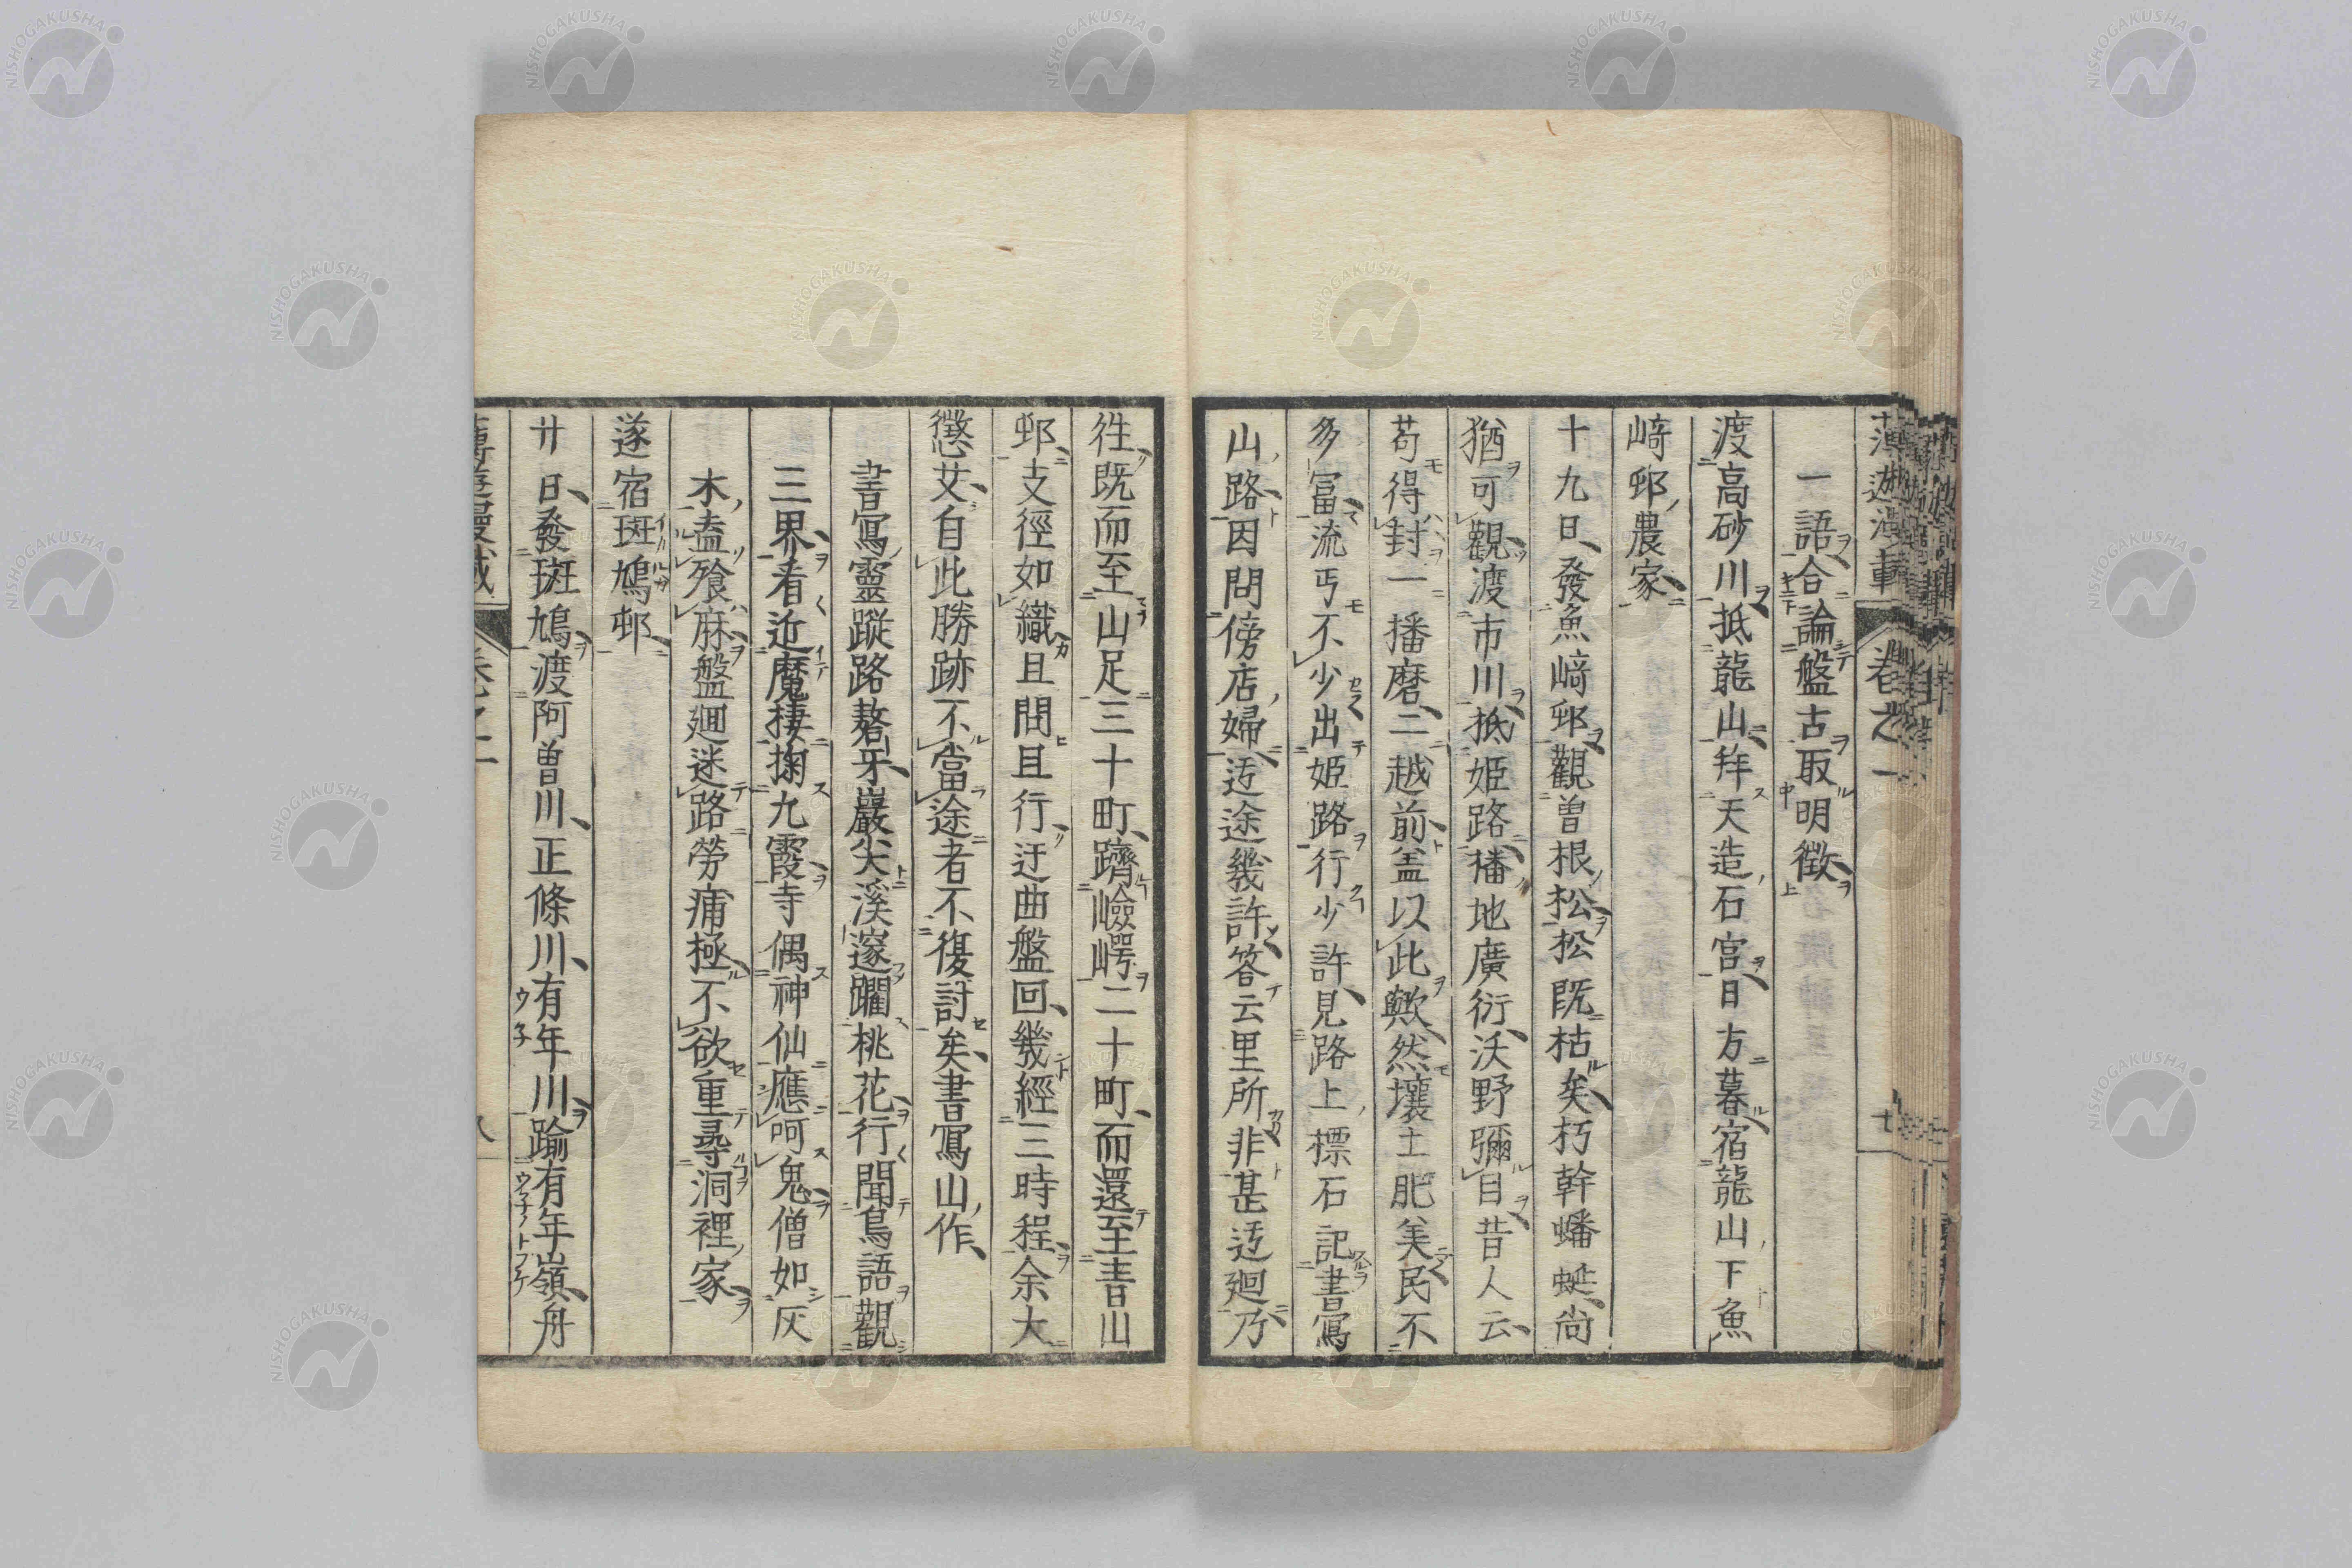 一語合論盤古取明徴
渡高砂川抵龍山拜天造石宮日方暮宿龍山下魚
﨑邨農家
十九日發魚﨑邨觀曽根松松既枯矣朽幹蟠蜒尚
猶可觀渡市川抵姬路播地廣衍沃野彌目昔人云
苟得封一播磨二越前盖以此歟然壤土肥美民不
多富流丐不少出姬路行少許見路上標石記書寫
山路因問傍店婦迂途幾許答云里所非甚迂廻乃
徃既而至山足三十町躋嶮崿二十町而還至書山
邨支徑如織且問且行迂曲盤回幾經三時程余大
懲艾自此勝跡不當途者不復討矣書寫山作
書寫靈蹤路嶅牙巖尖溪邃躙桃花行聞鳥語觀
三界看近魔棲掬九霞寺偶神仙應呵鬼僧如仄
木盍飱麻盤廻迷路勞痡極不欲重尋洞裡家
遂宿斑鳩邨
廿日發斑鳩渡阿曽川正條川有年川踰有年嶺舟
卷之一
七